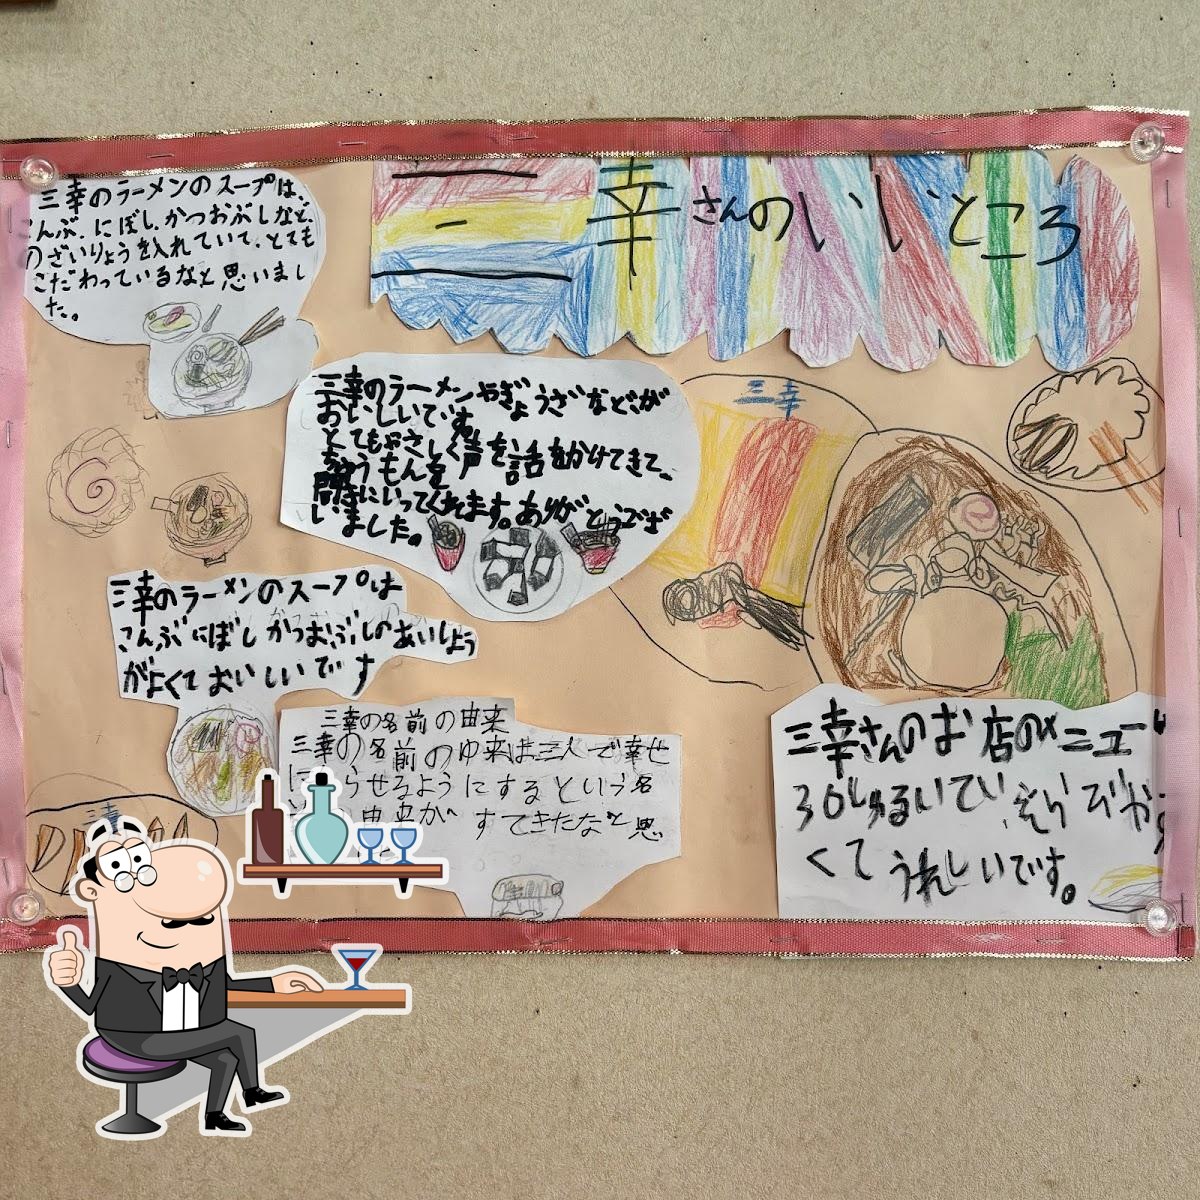 三幸さんのいいところ
三幸のラーメンのスープは、
こんぶ、にぼし、かつおぶしなど、
のざいりょうを入れていて、とても
こだわっているなと思いまし
た。
三幸のラーメンやぎょうざなどが
おいしいです。
とてもやさしく声を話をかけてきて、
ちゅうもんを
聞きにいってくれます。ありがとうござ
いました。
三幸
三幸のラーメンのスープは
こんぶにぼしかつおぶしのあいしょう
がよくておいしいです
三幸の名前の由来
三幸の名前のゆ来は三人で幸せ
らせるようにするという名
由来が すてきだなと思
三幸さんのお店のメニュー
36しゅるいでい、えらびや
くてうれしいです。
三幸